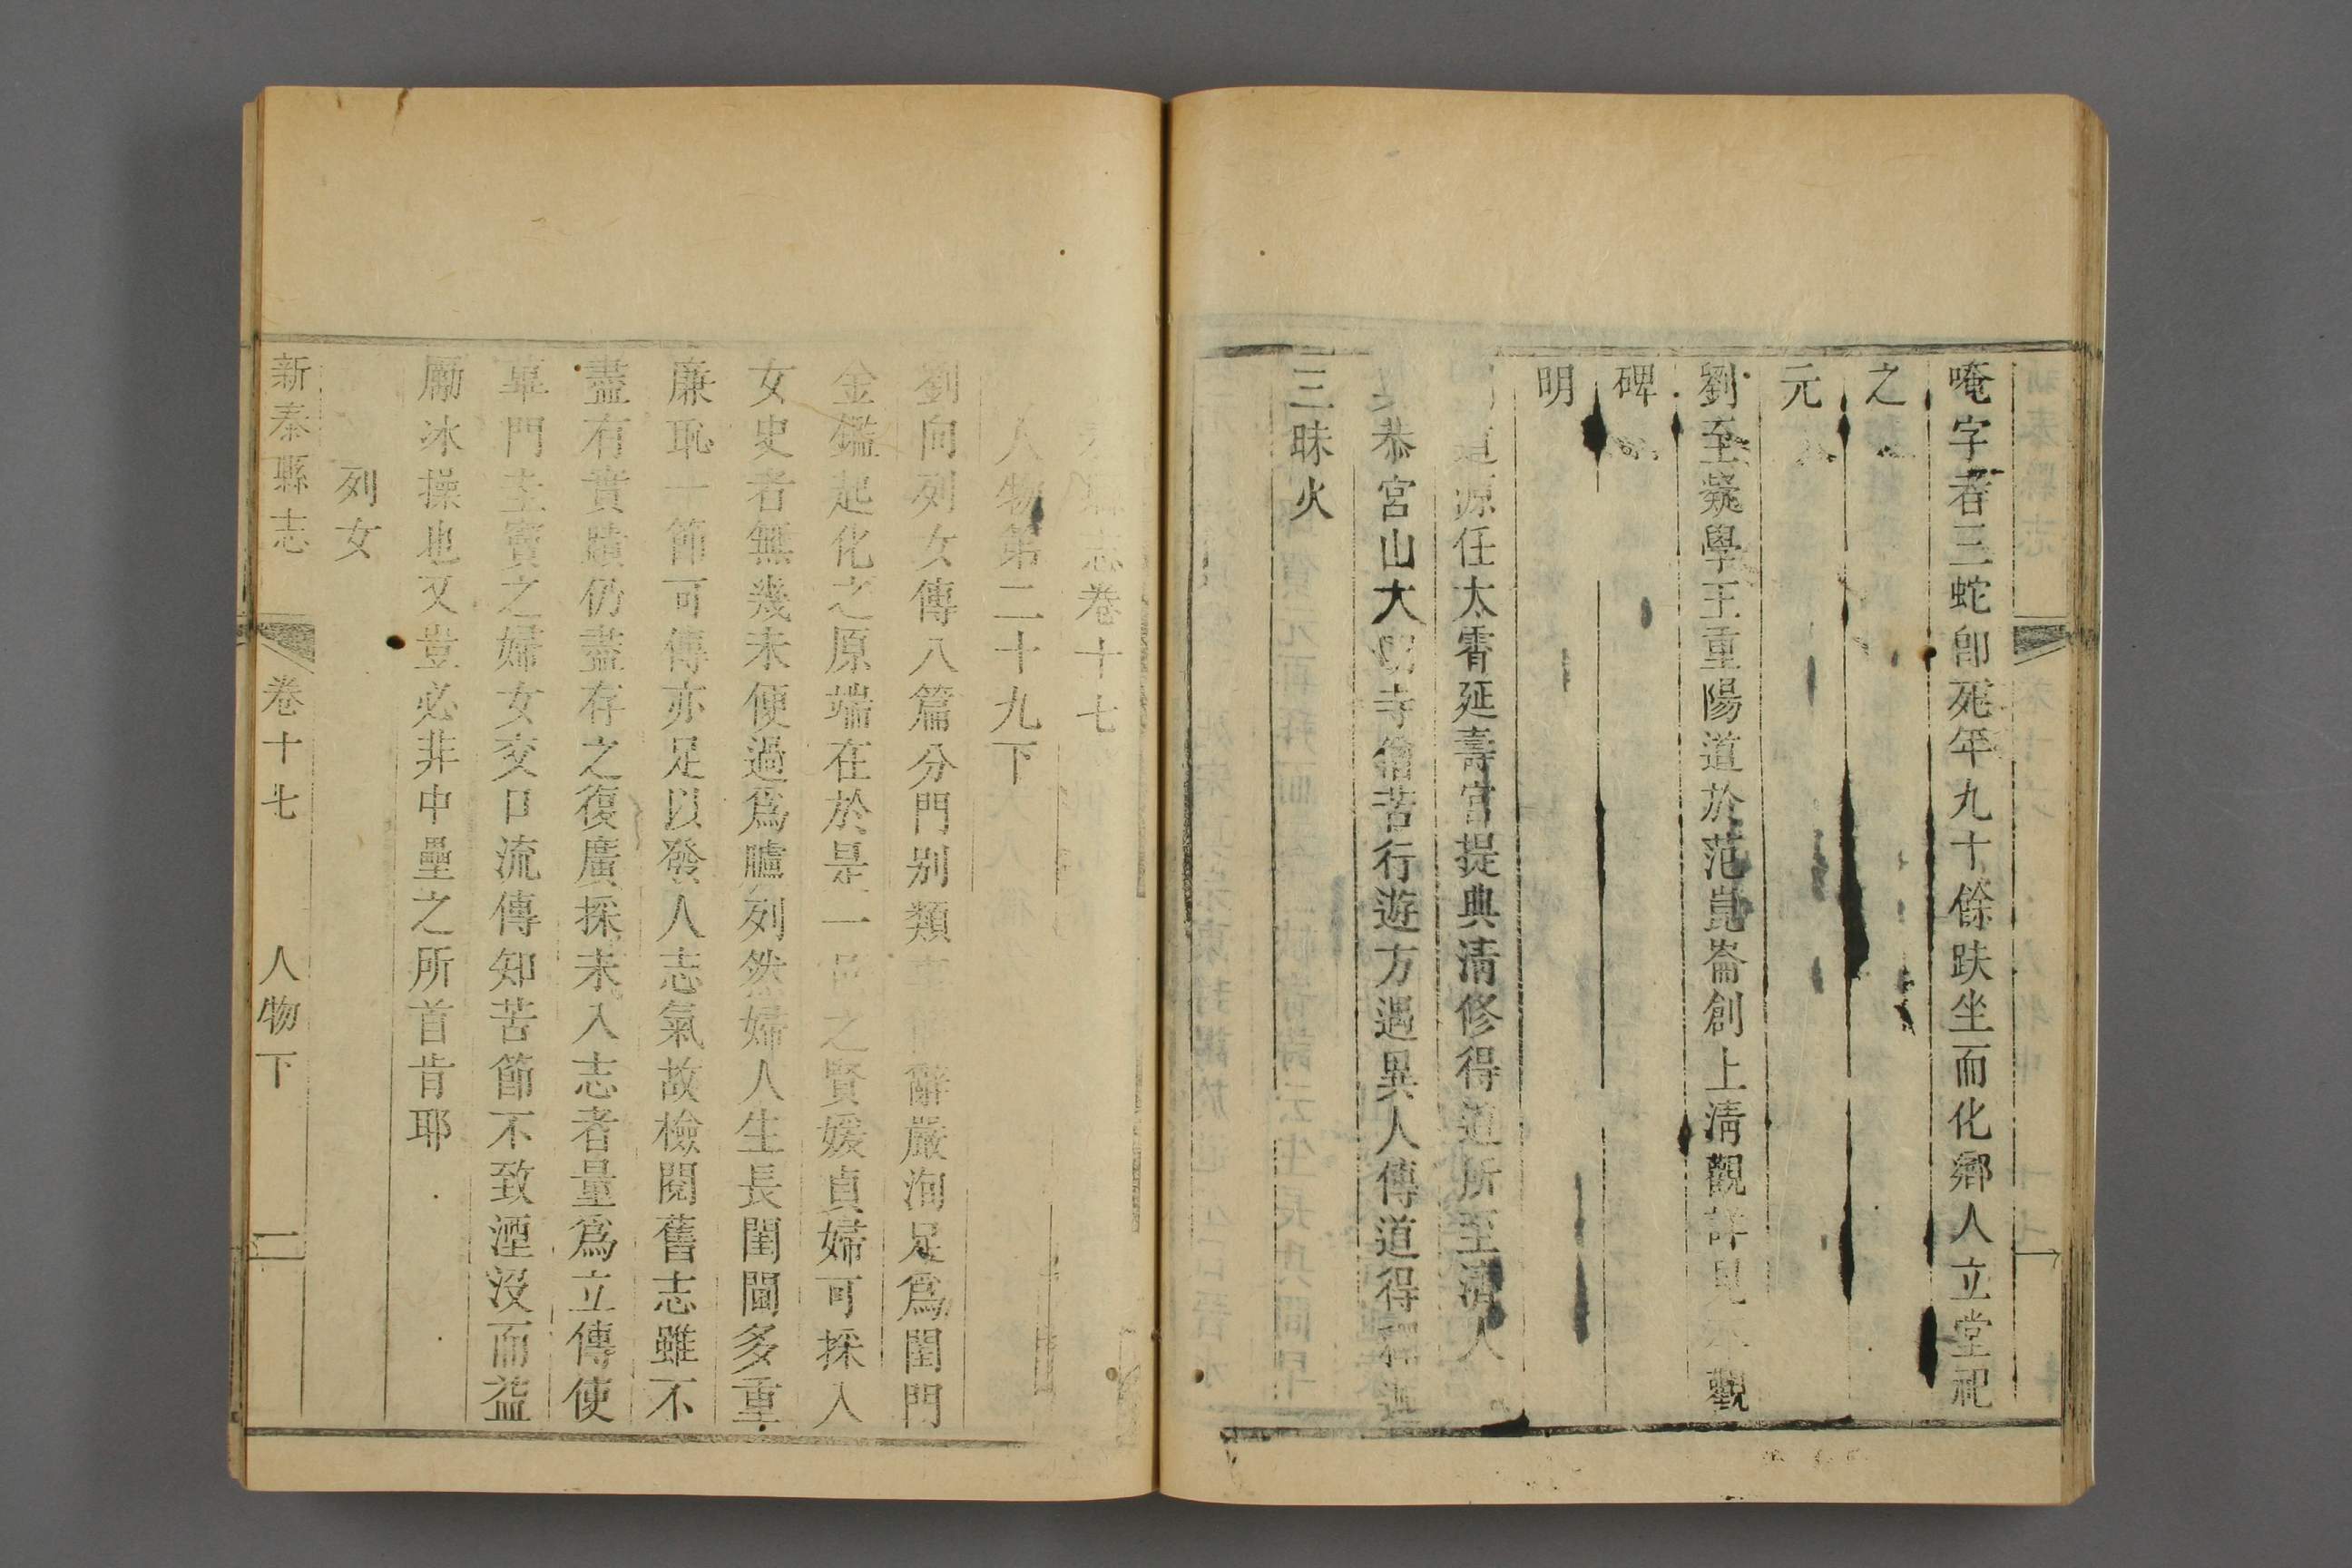 唵字者三蛇卽死年九十餘趺坐而化鄉人立堂祀
之
元
劉至嶷學王重陽道於范崑崙創上淸觀詳見本觀
碑
明
道源任太霄延壽宮提典淸修得道所至濟人
恭宮山大明寺僧苦行遊方遇異人傳道得
三昧火
縣志卷十七
人物第二十九下
劉向列女傳八篇分門別類辭嚴洵足爲閨門
金鑑起化之原端在於是一邑之賢媛貞婦可採入
女史者無幾未便過爲臚列然婦人生長閨閫多重
廉恥一節可傳亦足以發人志氣故檢閱舊志雖不
盡有實蹟仍盡存之復廣採未入志者量爲立傳使
蓽門圭竇之婦女交口流傳知苦節不致湮沒而益
勵冰操也又豈必非中壘之所首肯耶
列女
新泰縣志 卷十七 人物下 一